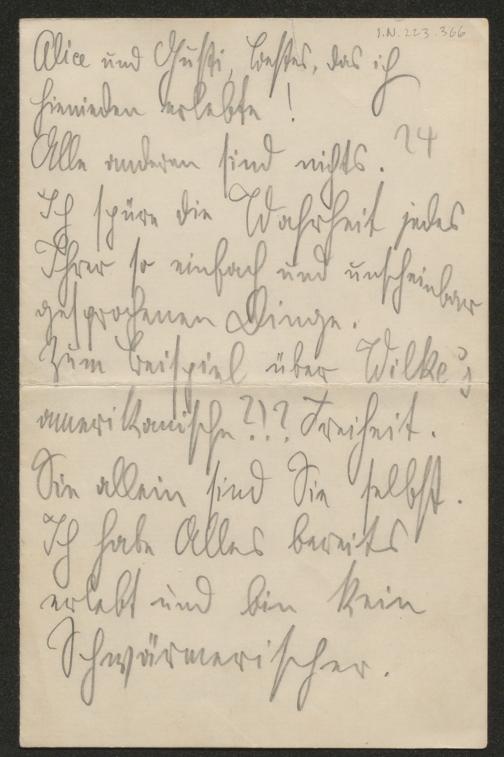 I.N. 223.366
Alice und Gusti, bestes, das ich
hienieden erlebte!
Alle anderen sind nichts. 24
Ich spüre die Wahrheit jedes
Ihrer so einfach und unscheinbar
gesprochenen Dinge.
Zum Beispiel über Wilke's
amerikanische?!? Freiheit.
Sie allein sind Sie selbst.
Ich habe Alles bereits
erlebt und bin kein
Schwärmerischer.